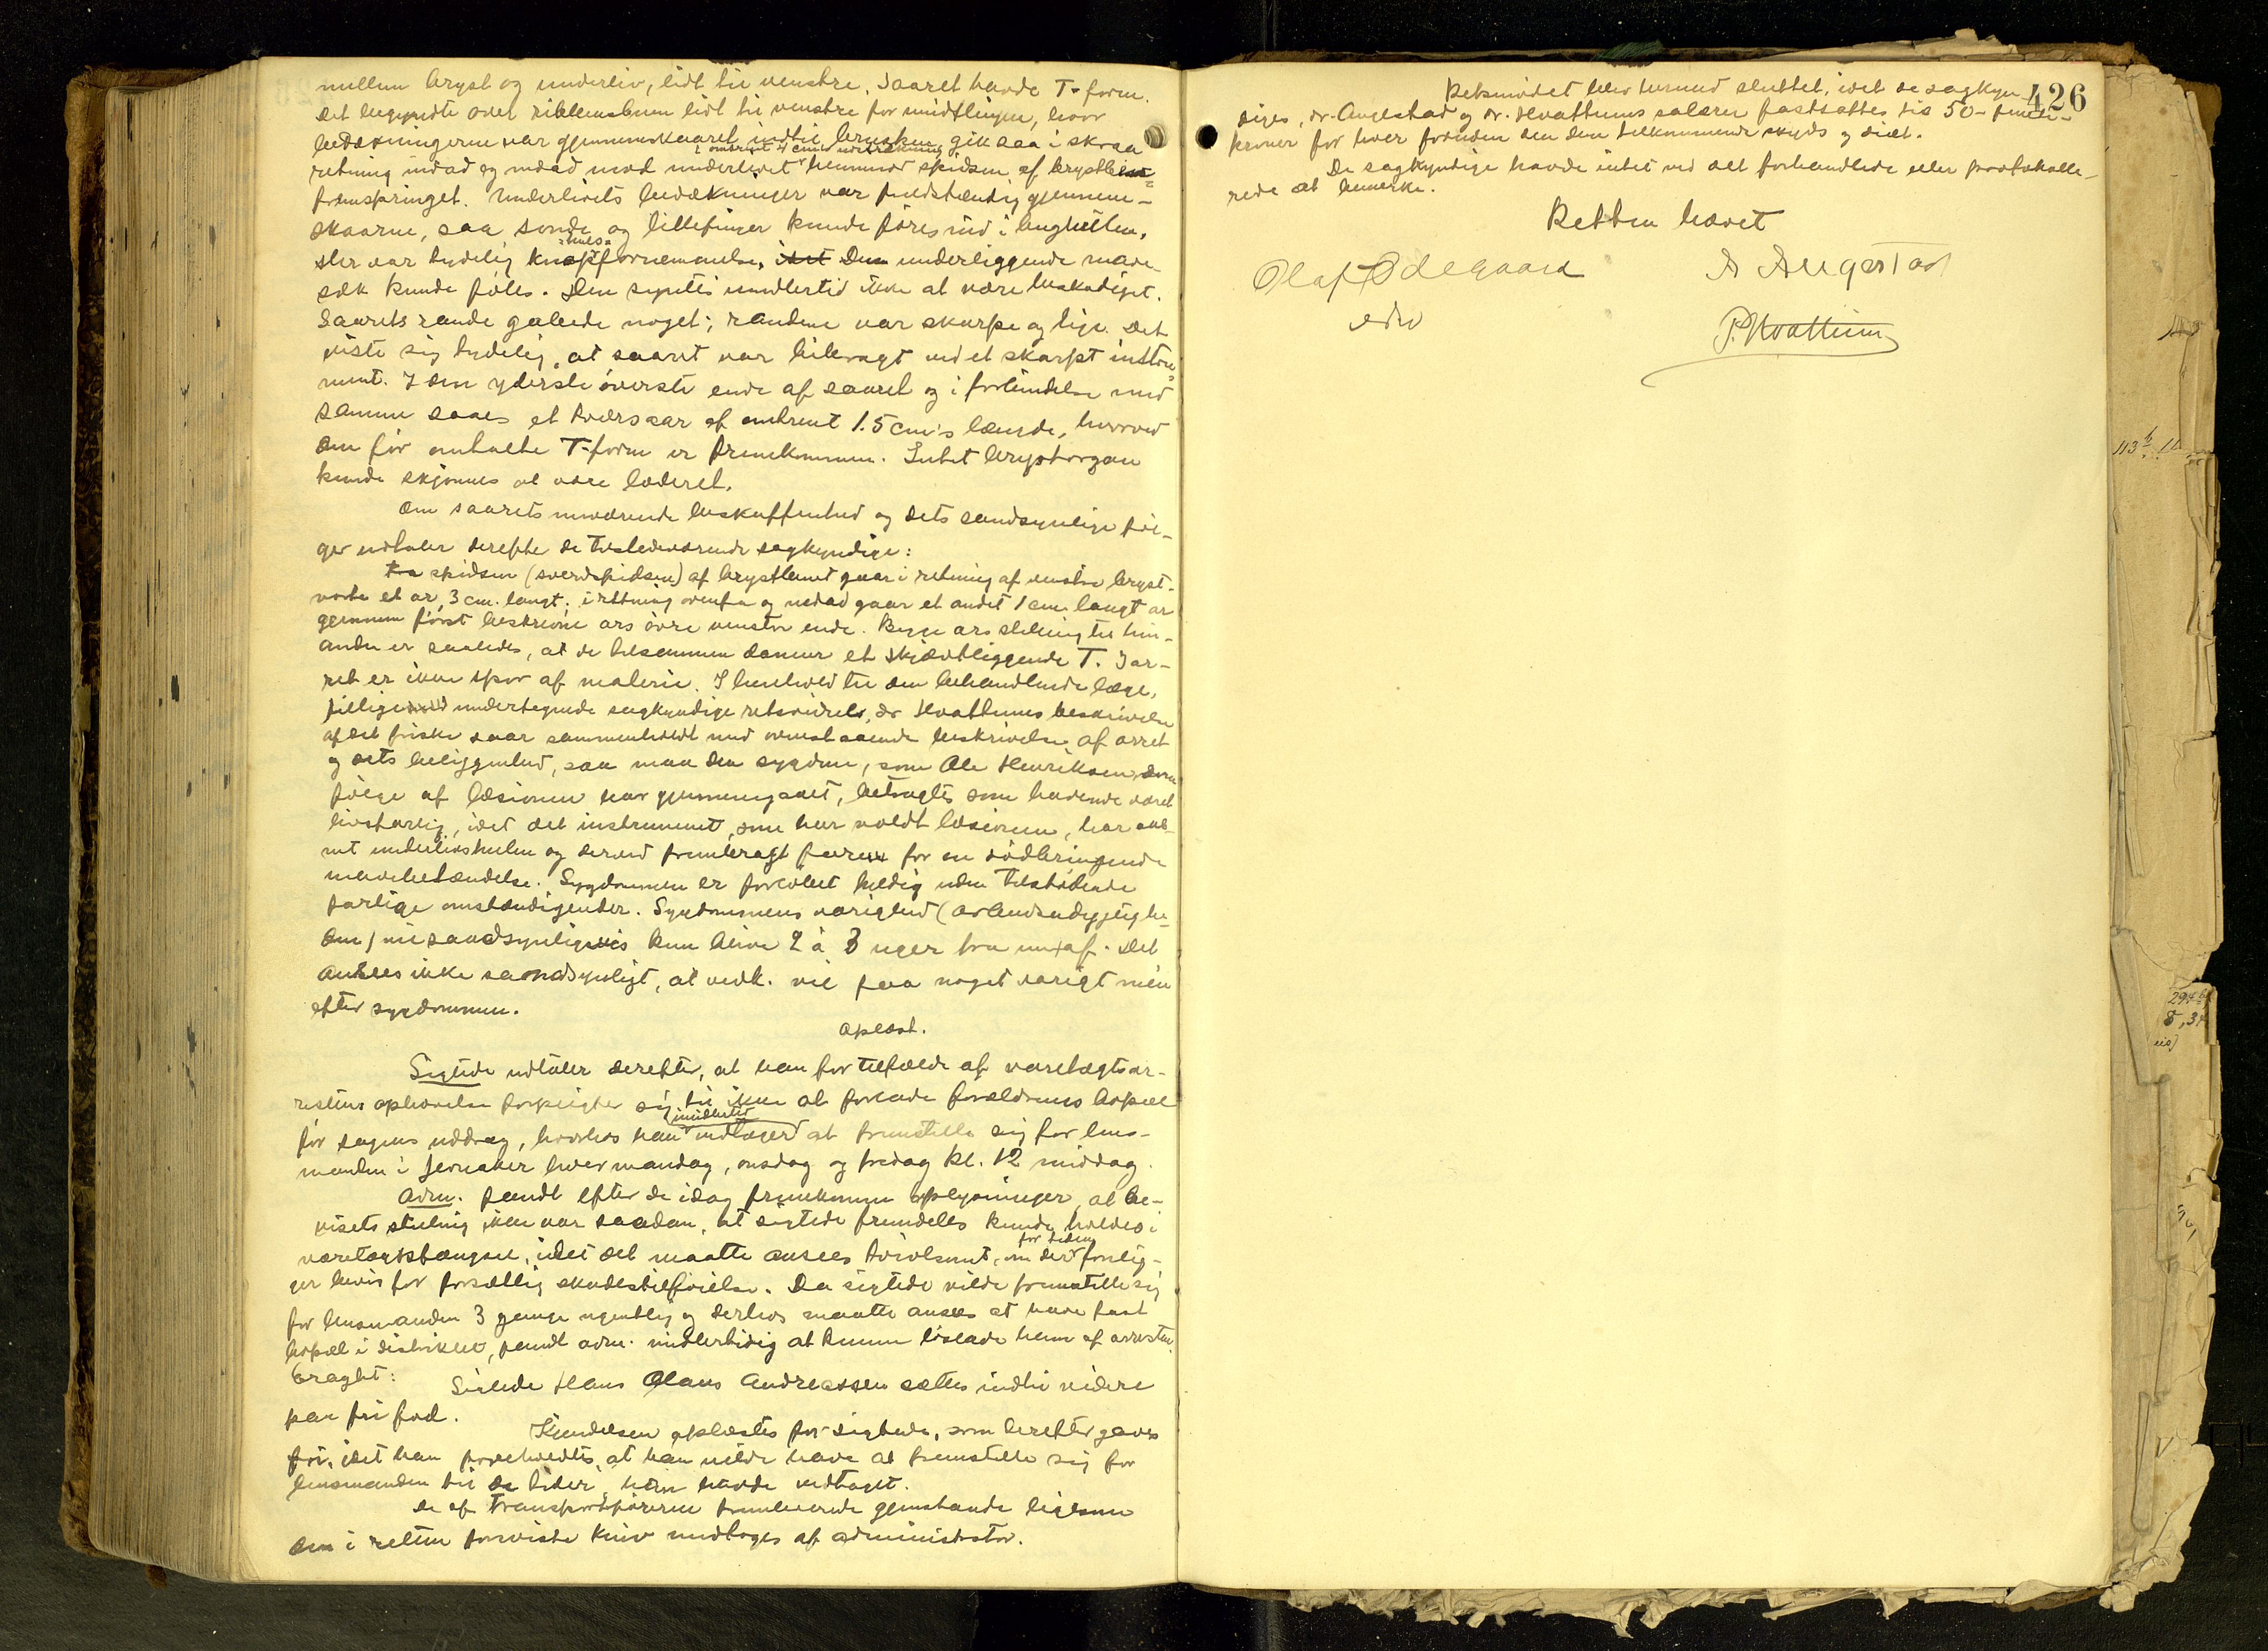 mellem bryst og underliv, lidt til venstre. Saaret havde T-form.
Det begyndte over ribbensbuen lidt til venstre for midtlinjen, hvor
bedækningerne var gjennemskaaret indtil brusken, gik saa i skraa
i omtrent 4 cm.s udstrækning
retning indad og nedad mod underlivet henimod spidsen af brystben-
fremspringet. Underlivets bedækninger var fuldstændig gjennem-
skaarne, saa sonde og lillefinger kunde føres ind i bughulen.
Der var tydelig fornemmelse, idet Den underliggende mave-
sæk kunde føles. Den syntes imidlertid ikke at være beskadiget.
Saarets rande gabede noget; randene var skarpe og lige. Det
viste sig tydelig, at saaret var bibragt ved et skarpt instru-
ment. I den yderste øverste ende af saaret og i forbindelse med
samme saaes et tværsaar af omtrent 1.5 cm's længde, hvorved
den før omtalte T-form er fremkommen. Intet brystorgan
kunde skjønnes at være læderet.
Om saarets nuværende beskaffenhed og dets sandsynlige føl-
ger udtaler derefter de tilstedeværende sagkyndige:
Fra spidsen (sverdspidsen) af brystbenet gaar i retning af venstre bryst-
vorte et ar, 3 cm. langt; i retning ovenfra og nedad gaar et andet 1 cm. langt ar
gjennem først beskrevne ars øvre venstre ende. Begge ars stilling til hin-
anden er saaledes, at de tilsammen danner et skjævtliggende T. I ar-
ret er ikke spor af materie. I henhold til den behandlende læge,
tillige undertegnede sagkyndige retsvidne, dr Hvattums beskrivelse
af det friske saar sammenholdt med ovenstaaende beskrivelse af arret
og dets beliggenhed, saa maa den sygdom, som Ole Henriksen som
følge af læsionen har gjennemgaaet, betragtes som havende været
livsfarlig, idet det instrument, som har voldt læsionen, har aab-
net underlivshulen og derved frembragt faren for en dødbringende
mavebetændelse. Sygdommen er forløbet heldig uden tilstødende
farlige omstændigheder. Sygdommens varighed (arbeidsudygtighe-
den) vil sandsynligvis kun blive 2 à 3 uger fra nu af. Det
ansees ikke sandsynligt, at vedk. vil faa noget varigt mén
efter sygdommen.
Oplæst.
Sigtede udtaler derefter, at han for tilfælde af varetægtsar-
restens ophævelse forpligter sig til ikke at forlade forældrenes bopæl
imidlertid
før sagens uddrag, hvorhos han vedtager at fremstille sig for lens-
manden i Jevnaker hver mandag, onsdag og fredag kl. 12 middag.
Adm. fandt efter de idag fremkomne oplysninger, at be-
visets stilling ikke var saadan, at sigtede fremdeles kunde holdes i
for tiden
varetægtsfængsel, idet det maatte ansees tvivlsomt, om der forelig-
ger bevis for forsætlig skadestilføielse. Da sigtede vilde fremstille sig
for lensmanden 3 gange ugentlig og derhos maatte ansees at have fast
bopæl i distriktet, fandt adm. midlertidig at kunne løslade ham af arresten.
bragt:
Sigtede Hans Olaus Andreassen sættes indtil videre
paa fri fod.
Kjendelsen oplæstes for sigtede, som derefter gaves
fri, idet han foreholdtes, at han vilde have at fremstille sig for
lensmanden til de tider, han havde vedtaget.
De af transportføreren fremleverede gjenstande ligesom
den i retten foreviste kniv modtoges af administrator.
426
Retsmødet blev hermed sluttet, idet de sagkyn-
diges, dr. Angestad og dr. Hvattums salærer fastsattes til 50 – femti-
kroner for hver foruden den dem tilkommende skyds og diæt.
De sagkyndige havde intet ved det forhandlede eller protokolle-
rede at bemerke.
Retten hævet
Olaf Ødegaard
A Angestad
edv
P. Hvattum